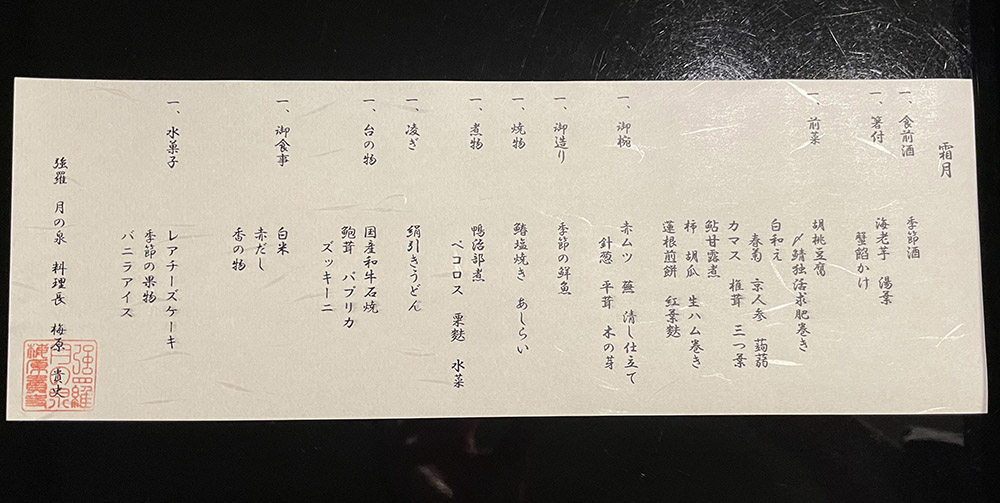 霜月
一、食前酒
季節酒
一、箸付
海老芋 湯葉
蟹餡かけ
一、前菜
胡桃豆腐
〆鯖独活求肥巻き
白和え
春菊 京人参 蒟蒻
カマス 椎茸 三つ葉
鮎甘露煮
柿 胡瓜 生ハム巻き
蓮根煎餅 紅葉麩
一、御椀
赤ムツ 蕪 清し仕立て
針葱 平茸 木の芽
一、御造り
季節の鮮魚
一、焼物
鰆塩焼き あしらい
一、煮物
鴨治部煮
ペコロス 栗麩 水菜
一、凌ぎ
絹引きうどん
一、台の物
国産和牛石焼
鮑茸 パプリカ
ズッキーニ
一、御食事
白米
赤だし
香の物
一、水菓子
レアチーズケーキ
季節の果物
バニラアイス
強羅 月の泉 料理長 梅原 貴史